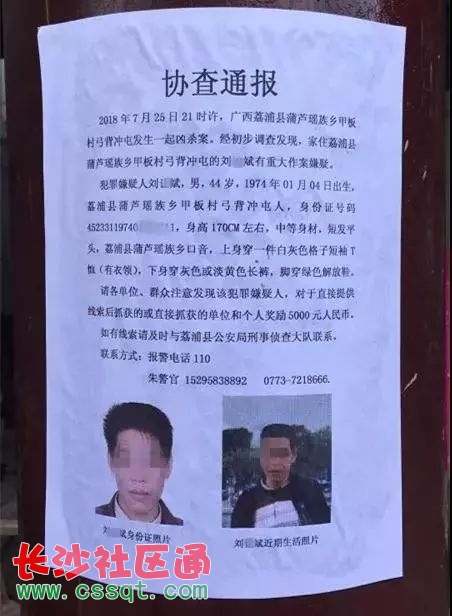 协查通报
2018年7月25日21时许，广西荔浦县蒲芦瑶族乡甲板
村弓背冲屯发生一起凶杀案。经初步调查发现，家住荔浦县
蒲芦瑶族乡甲板村弓背冲屯的刘 斌有重大作案嫌疑。
犯罪嫌疑人刘 斌，男，44岁，1974年01月04日出生，
荔浦县蒲芦瑶族乡甲板村弓背冲屯人，身份证号码
45233119740 1，身高170CM左右，中等身材，短发平
头，荔浦县蒲芦瑶族乡口音，上身穿一件白灰色格子短袖T
恤（有衣领），下身穿灰色或淡黄色长裤，脚穿绿色解放鞋。
请各单位、群众注意发现该犯罪嫌疑人，对于直接提供
线索后抓获的或直接抓获的单位和个人奖励5000元人民币。
如有线索请及时与荔浦县公安局刑事侦查大队联系。
联系方式：报警电话110
朱警官 15295838892 0773-7218666.
刘 斌身份证照片
刘 斌近期生活照片
长沙社区通
www.cssqt.com